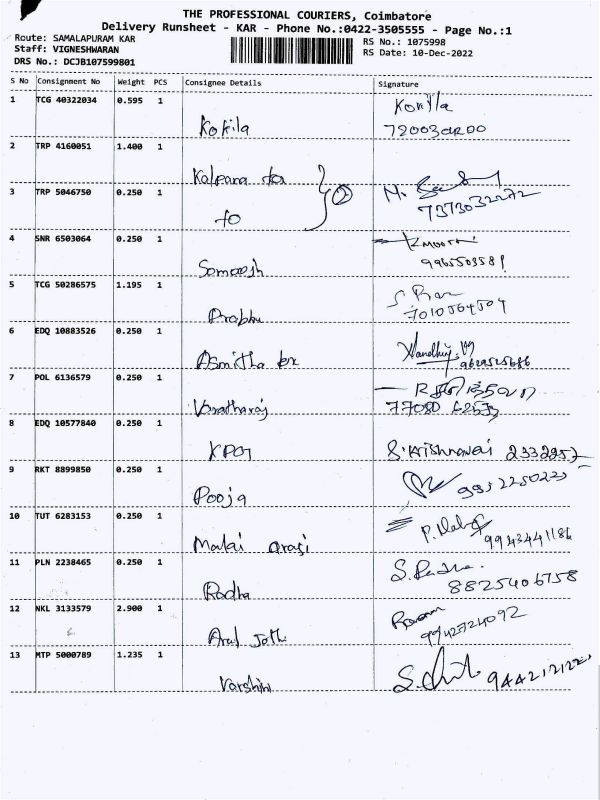 THE PROFESSIONAL COURIERS, Coimbatore
Delivery Runsheet - KAR - Phone No.:0422-3505555 - Page No.:1
Route: SAMALAPURAM KAR
RS No.: 1075998
Staff: VIGNESHWARAN
RS Date: 10-Dec-2022
DRS No.: DCJB107599801
S No Consignment No Weight PCS Consignee Details Signature
1 TCG 40322034 0.595 1 Kokila
2 TRP 4160051 1.400 1 Kalpana
3 TRP 5046750 0.250 1 to 2
4 SNR 6503064 0.250 1
9965503581
5 TCG 50286575 1.195 1 Prabhu
7010564504
6 EDQ 10883526 0.250 1 Asmitha
7 POL 6136579 0.250 1 Varatharaj
8 EDQ 10577840 0.250 1
9 RKT 8899850 0.250 1 Pooja
9952250223
10 TUT 6283153 0.250 1 Malai arasi
9943441186
11 PLN 2238465 0.250 1 Radha S. Radha.
8825406758
12 NKL 3133579 2.900 1 Arul Jothi
9942724092
13 MTP 5000789 1.235 1 Varshini